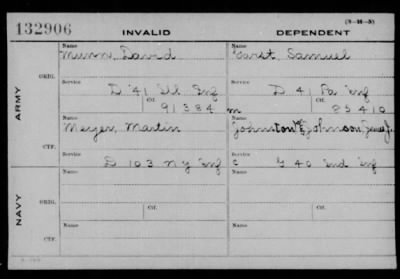 132906 INVALID DEPENDENT (3-16-5)
Name Name
Munn, David Garst, Samuel
ORIG. Service Service
D 41 Ill Inf D 41 Pa Inf
Ctf. Ctf.
91384 m 85410
ARMY
Name Name
Meyer, Martin Johnston or Johnson, James J.
CTF. Service Service
D 103 N Y Inf C G 40 Ind Inf
Name Name
ORIG.
Ctf. Ctf.
NAVY
Name Name
CTF.